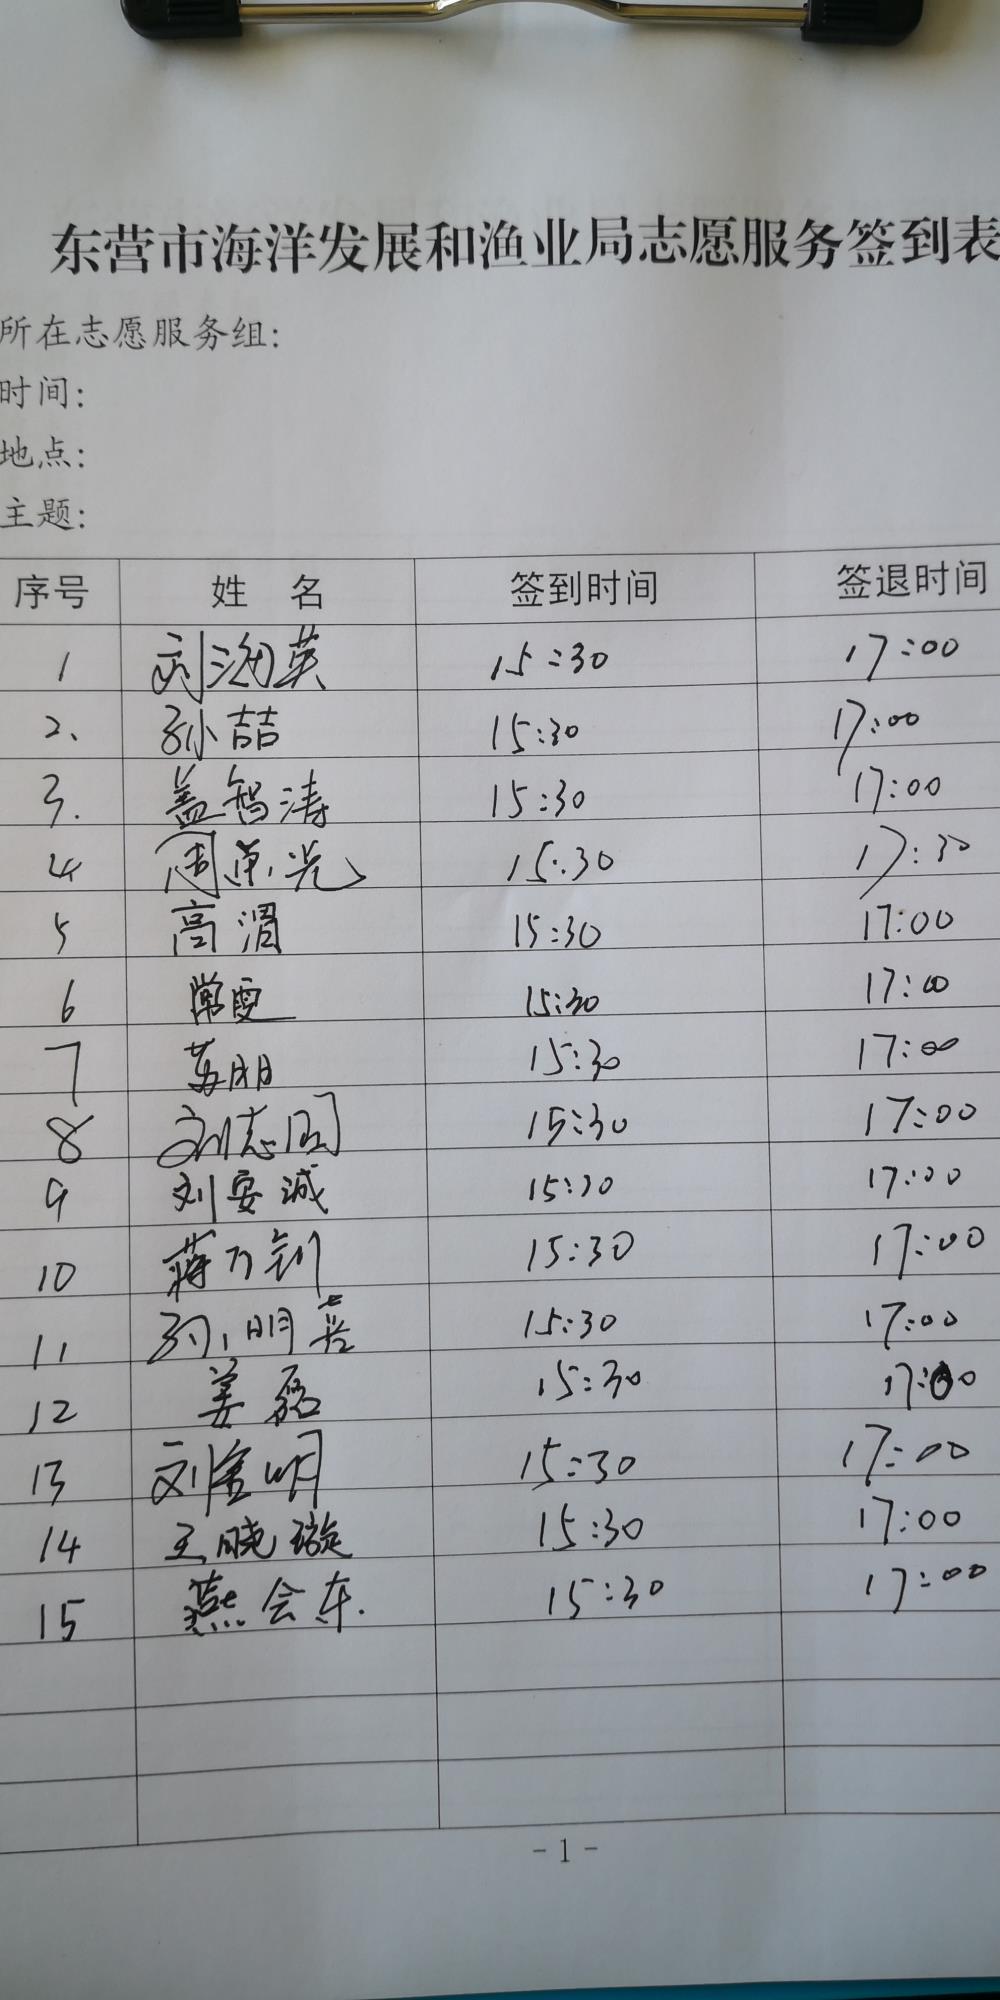 东营市海洋发展和渔业局志愿服务签到表
所在志愿服务组:
时间:
地点:
主题:
序号 姓 名 签到时间 签退时间
1 刘海英 15:30 17:00
2、 孙喆 15:30 17:00
3. 盖智涛 15:30 17:00
4 周 光 15:30 17:30
5 高渭 15:30 17:00
6 常雯 15:30 17:00
7 苏朋 15:30 17:00
8 刘志国 15:30 17:00
9 刘安诚 15:30 17:00
10 蒋乃钊 15:30 17:00
11 明 15:30 17:00
12 姜磊 15:30 17:00
13 刘金明 15:30 17:00
14 王晓璇 15:30 17:00
15 燕会东. 15:30 17:00
- 1 -